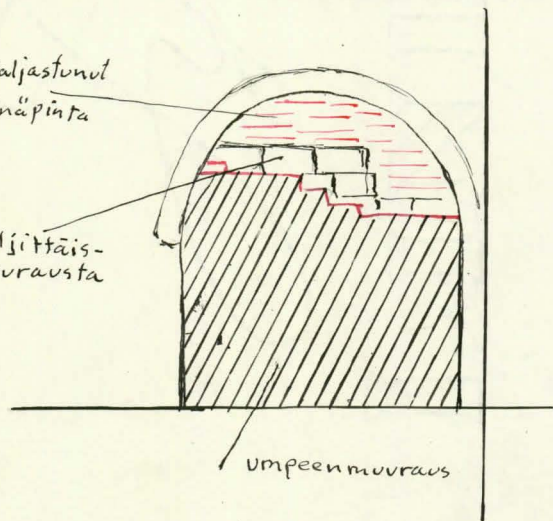 aljastunut
näpinta
jittäis-
urausta
umpeenmuuraus